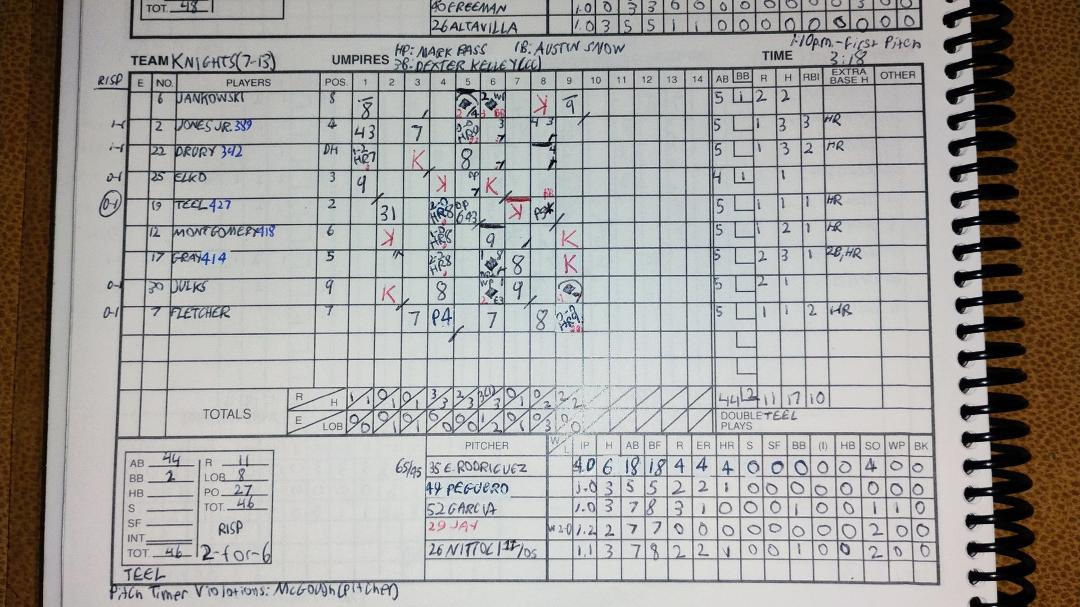 TOT. 48
40 FREEMAN 1.0 3 3 0 0 0 0 0 3 0 0
26 ALTAVILLA 1.0 3 5 5 1 1 0 0 0 0 0 0 0 0
1:10pm-First Pitch
TEAM KNIGHTS(7-13) UMPIRES HP: MARK BASS 1B: AUSTIN SNOW TIME 3:18
3B: DEXTER KELLEY(CC)
RISP E NO. PLAYERS POS. 1 2 3 4 5 6 7 8 9 10 11 12 13 14 AB BB R H RBI EXTRA BASE H OTHER
6 JANKOWSKI 8 8 K 9 5 1 2 2
1-1 2 JONES JR. 389 4 43 7 HR 5 1 3 3 HR
1-1 22 DRURY 342 DH HR7 K 8 5 1 3 2 HR
0-1 25 ELKO 3 9 K K 4 1 1
0-1 19 TEEL 427 2 31 HR8 DP 643 K 5 1 1 1 HR
12 MONTGOMERY 418 6 K HR8 9 K 5 1 2 1 HR
17 GRAY 414 5 HR8 8 K 5 2 3 1 2B, HR
0-1 30 JULKS 9 K 8 WP E3 9 5 2 1
0-1 7 FLETCHER 7 7 P4 7 8 HR9 5 1 1 2 HR
TOTALS R H 44 2 11 17 10
E LOB DOUBLE PLAYS TEEL
PITCHER W/L IP H AB BF R ER HR S SF BB (I) HB SO WP BK
AB 44 R 11
BB 2 LOB 8
HB PO 27
S TOT. 46
SF RISP
INT 2-for-6
TOT. 46
TEEL
65/95 35 E. RODRIGUEZ 4.0 6 18 18 4 4 4 0 0 0 0 0 4 0 0
49 PEGUERO 1.0 3 5 5 2 2 1 0 0 0 0 0 0 0 0
52 GARCIA 1.0 3 7 8 3 1 0 0 0 1 0 0 1 1 0
29 JAY W 2-0 1.2 2 7 7 0 0 0 0 0 0 0 0 2 0 0
26 NITTOLI 1.1 3 7 8 2 2 1 0 0 1 0 0 2 0 0
Pitch Timer Violations: McGough (pitcher)